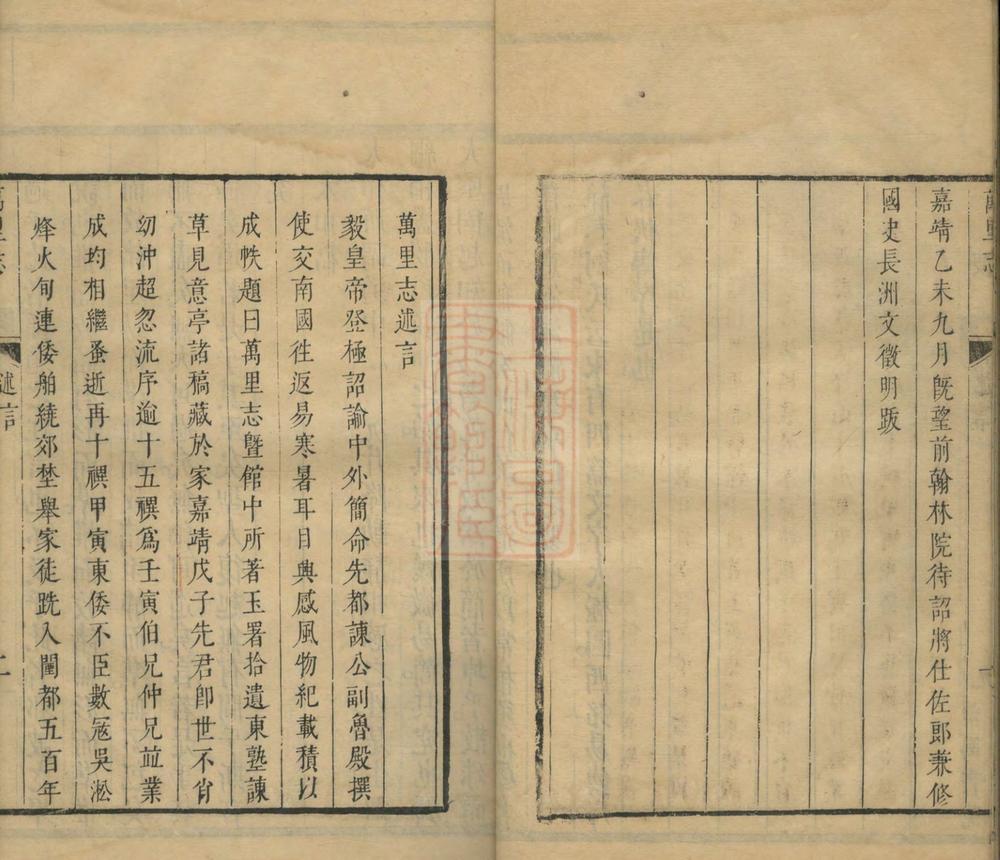 嘉靖乙未九月旣望前翰林院待詔將仕佐郎兼修
國史長洲文徵明跋
萬里志述言
毅皇帝登極詔諭中外簡命先都諫公副魯殿撰
使交南國徃返易寒暑耳目興感風物紀載積以
成帙題曰萬里志暨館中所著玉署拾遺東塾諫
草見意亭諸稿藏於家嘉靖戊子先君卽世不肖
幼沖超忽流序逾十五禩爲壬寅伯兄仲兄竝業
成均相繼蚤逝再十禩甲寅東倭不臣數冦吳淞
烽火旬連倭舶繞郊埜舉家徒跣入閶都五百年
萬里志
述言